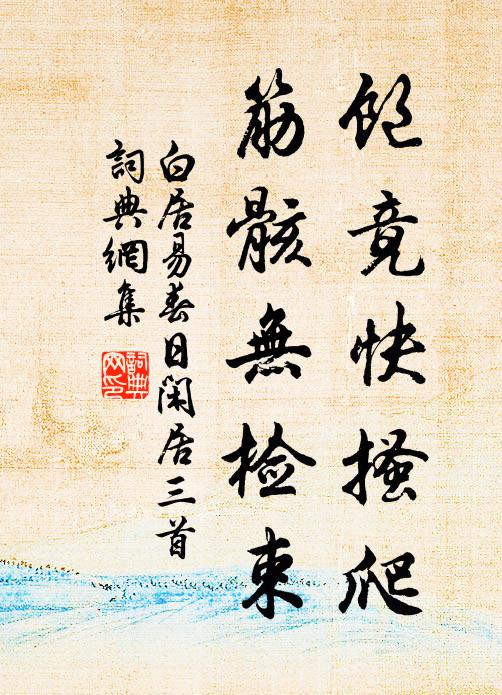 飽竟快搔爬
筋骸無檢束
白居易春日閑居三首
詞典網集
詞典网印